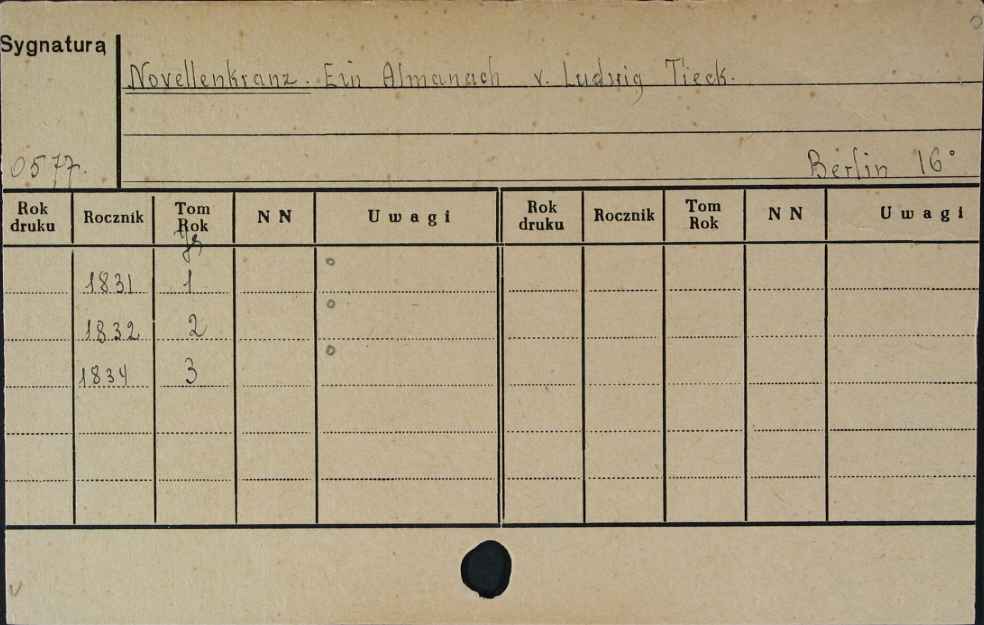 Sygnatura
Novellenkranz. Ein Almanach v. Ludwig Tieck.
0577.
Berlin 16°
Rok druku Rocznik Tom Rok NN Uwagi Rok druku Rocznik Tom Rok NN Uwagi
Jg
1831 1
1832 2
1834 3